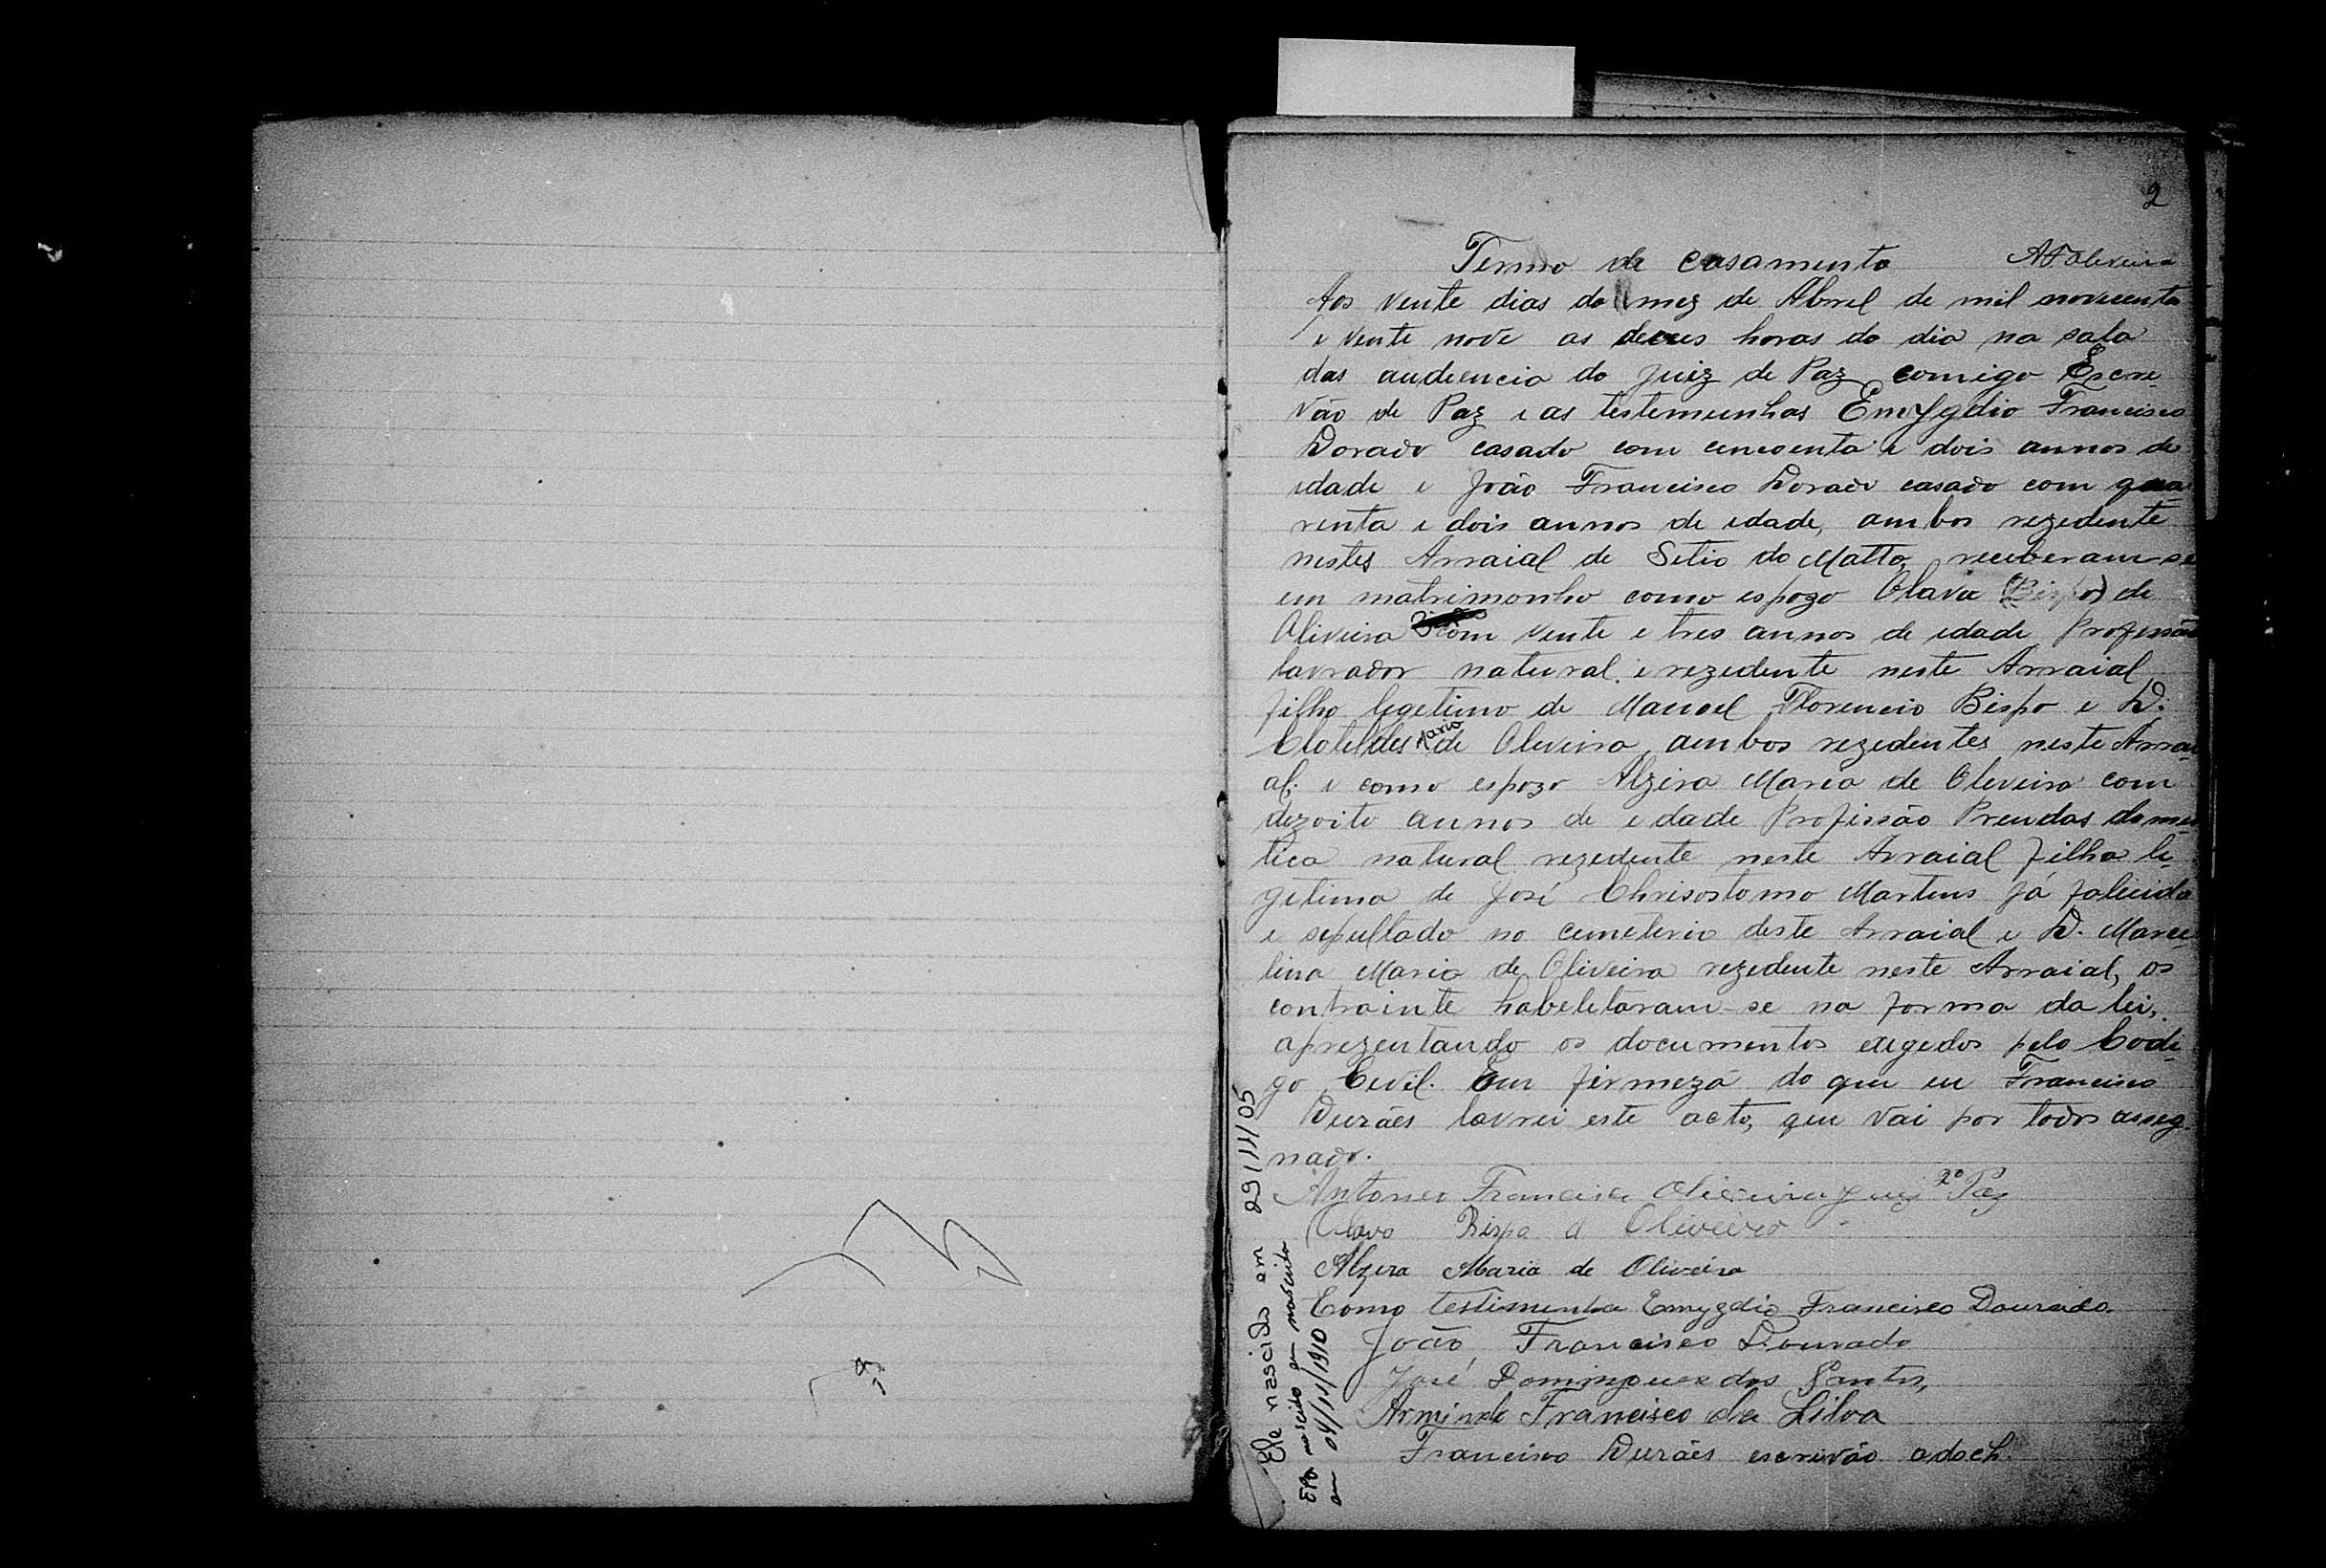 2
Termo de casamento
AFOliveira
Aos vente dias do mez de Abril de mil novecento
e vente nove as horas do dia na sala
das audiencia do Juiz de Paz comigo Escre-
vão de Paz e as testemunhas Emygdio Francisco
Dorado casado com cincoenta e dois annos de
idade e João Francisco Dorado casado com qua
renta e dois annos de edade, ambos rezedente
nestes Arraial de Setio do Matto, receberam-se
em matrimonho como espozo Olavo (Bispo) de
Oliveira com vente e tres annos de edade Profissão
lavrador natural e rezedente neste Arraial
filho legetimo de Manoel Florencio Bispo e D.
Clotildes Maria de Oliveira, ambos rezedentes neste Arrai-
al. e como espoza Alzira Maria de Oliveira com
dezoito annos de edade Profissão Prendas domes
tica natural rezedente neste Arraial filha le-
getima de José Chrisostomo Martins já falicido
e sepultado no cemeterio deste Arraial e D. Marce-
lina Maria de Oliveira rezedente neste Arraial, os
contrainte habelitaram-se na forma da lei,
aprezentando os documentos exegedos pelo Codi-
go Cevil. Em firmeza do que eu Francisco
Durães lavrei este acto, que vai por todos asseg-
nado.
Antonio Francisco Oliveira Juiz 2º Paz
Olavo Bispo d Oliveira
Alzira Maria de Oliveira
Como testimunha Emygdio Francisco Dourado.
João Francisco Dourado
José Domingues dos Santos,
Armindo Francisco da Silva
Francisco Durães escrivão adoch.
Ele nascido em 29/11/05
Ela nascido em nascida
em 04/11/1910